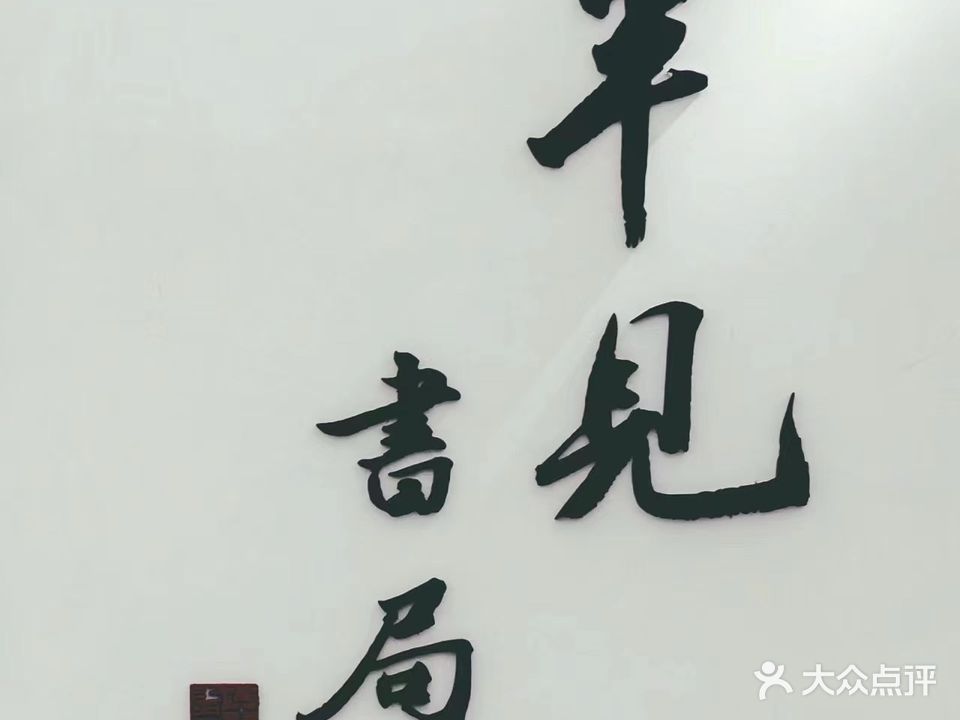 罕见
書局
大众点评